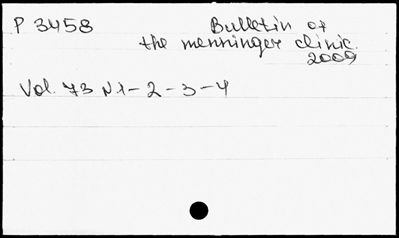 P 3458 Bulletin of
the menninger clinic.
2009
Vol. 73 N 1 - 2 - 3 - 4